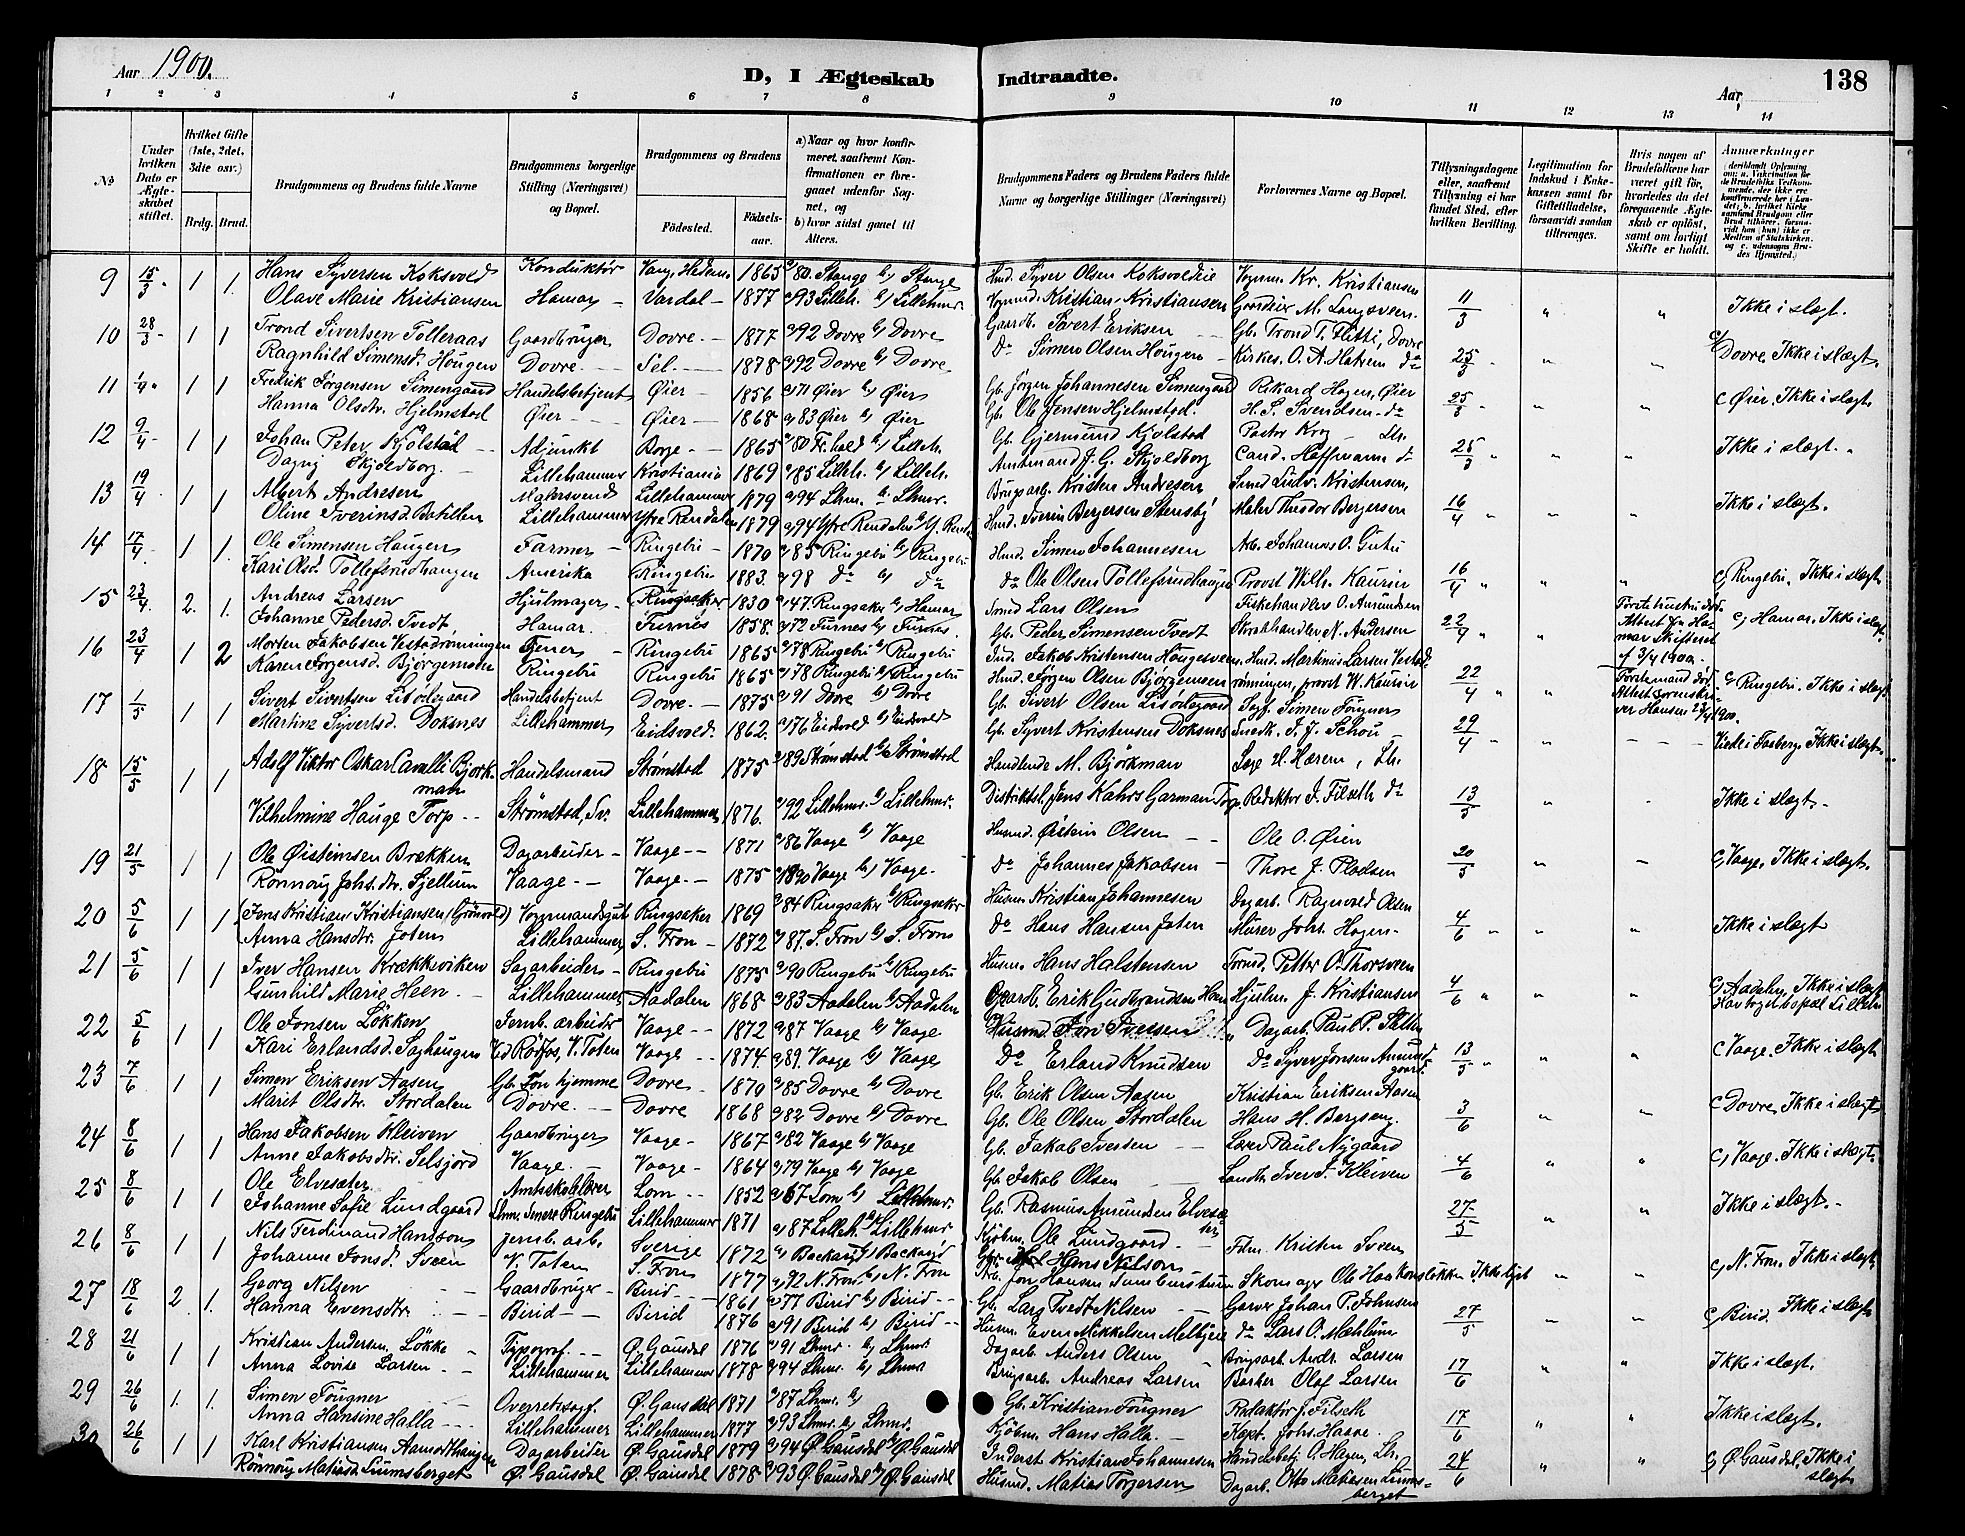 Aar 1900.
D, I Ægteskab Indtraadte.
Aar
138
1 2 3 4 5 6 7 8 9 10 11 12 13 14
No
Under hvilken Dato er Ægteskabet stiftet.
Hvilket Gifte (1ste, 2det, 3dte osv.)
Brdg. Brud.
Brudgommens og Brudens fulde Navne
Brudgommens borgerlige Stilling (Næringsvei) og Bopæl.
Brudgommens og Brudens
Fødested. Fødselsaar.
a) Naar og hvor konfirmeret, saafremt Konfirmationen er foregaaet udenfor Sognet, og
b) hvor sidst gaaet til Alters.
Brudgommens Faders og Brudens Faders fulde Navne og borgerlige Stillinger (Næringsvei)
Forlovernes Navne og Bopæl.
Tillysningsdagene eller, saafremt Tillysning ei har fundet Sted, efter hvilken Bevilling.
Legitimation for Indskud i Enkekassen samt for Giftetilladelse, forsaavidt saadan tiltrænges.
Hvis nogen af Brudefolkene har været gift før, hvorledes da det foregaaende Ægteskab er opløst, samt om lovligt Skifte er holdt.
Anmærkninger
9 15/3 1 1. Hans Syversen Koksvold Konduktør Vang, Hedem. 1865 80. Stange b) Stange Hmd. Syver Olsen Koksvoldeie Vognm. Kr. Kristiansen
Olave Marie Kristiansen Hamar Vardal 1877 93 Lilleh. b) Lillehmr. Vognmd. Kristian Kristiansen Gaardeier M. Langsveen 11/3 " " Ikke i slægt.
10 28/3 1 1 Trond Sivertsen Tolleraas Gaardbruger Dovre 1877 92 Dovre b) Dovre Gaardb. Sivert Eriksen Gb. Trond T. Flitti, Dovre
Ragnhild Simensd. Hougen Dovre Sel. 1878 92 Dovre b) Dovre Do Simen Olsen Hougen Kirkes. O. A. Hatrem do 25/3 " " c/ Dovre. Ikke i slægt.
11 1/4 1 1 Fredrik Jørgensen Simengaard Handelsbetjent Øier 1856 71 Øier b) Øier Gb. Jørgen Johannesen Simengaard Rikard Hagen, Øier
Hanna Olsdtr. Hjelmstad Øier Øier 1868 83 Øier b) Øier Gb. Ole Jensen Hjelmstad. H. S. Svendsen do 25/3 " " c Øier. Ikke i slægt.
12 9/4 1 1 Johan Peter Kjølstad Adjunkt Borge 1865 80 Fr.hald b) Lilleh. Gb. Gjermund Kjølstad Pastor Krog Lh.
Dagny Skjoldborg. Lillehammer Kristiania 1869 85 Lilleh. b) Lilleh. Amtmand J. G. Skjoldborg Cand. Hoffmann do 25/3 " " Ikke i slægt.
13 19/4 1 1 Albert Andresen Malersvend Lillehammer 1879 94 Lhm. b. Lhmr. Brugsarb. Kristen Andresen Smed Ludv. Kristensen,
Oline Iverinsd. Botillen Lillehammer Ytre Rendalen 1879 94 Ytre Rendalen b) Y. Rend. Hmd. Iverin Bergersen Stensby Maler Theodor Bergersen 16/4 " " Ikke i slægt.
14 17/4 1 1. Ole Simensen Haugen Farmer Ringebu 1870 85 Ringebu b) Ringebu Hmd. Simen Johannesen Arb. Johannes O. Gutu
Kari Olsd. Tollefsrudhaugen Amerika Ringebu 1883. 98 do b) do do Ole Olsen Tollefsrudhaugen Provst Wilh. Kaurin 16/4 " " " c) Ringebu. Ikke i slægt
15 23/4 2. 1. Andreas Larsen Hjulmager Ringsaker 1830 47. Ringsaker b) Hamar Smed Lars Olsen Fiskehandler O. Amundsen
Johanne Pedersd. Tvedt Hamar. Furnes 1858. 72 Furnes b) Furnes. Gb. Peder Simensen Tvedt Skrabhandler N. Andersen 22/4 " " Første hustru død. Attest fra Hamar Skifteret af 3/4 1900. c) Hamar. Ikke i slægt.
16 23/4 1 2 Morten Jakobsen Vestadrønningen Tjener Ringebu 1865 78 Ringebu b) Ringebu Ind. Jakob Kristensen Hougesveen. Hmd. Martinus Larsen Vestad-
Karen Jørgensd. Bjørgemoen Ringebu Ringebu 1865 78 Ringebu b) Ringebu Hmd. Jørgen Olsen Bjørgemoen rønningen, provst W. Kaurin 22/4 " " Første mand død. Attest sorenskriver Hansen 23/4 1900. c) Ringebu. Ikke i slægt
17 1/5 1 1 Sivert Sivertsen Lisødegaard Handelsbetjent Dovre. 1875 91 Dovre b) Dovre Gb. Sivert Olsen Lisødegaard Sagf. Simen Fougner
Martine Syvertsd. Doksnes Lillehammer Eidsvold. 1862. 76 Eidsvold b) Eidsvold Gb. Syvert Kristensen Doksnes Snedk. J. J. Schou 29/4 " " Viede i Faaberg. Ikke i slægt.
18 15/5 1 1 Adolf Viktor Oskar Cavalli Bjorkman Handelsmand Strømstad 1875 89 Strømstad b) Strømstad Handlende M. Björkman Sage H. Hærem, Lh.
Vilhelmine Hauge Torp Strømstad, Sv. Lillehammer 1876. 92 Lillehmr. b) Lillehmr. Distriktsl. Jens Kahrs Garman Torp Redaktør J. Filseth do 13/5 " Ikke i slægt.
19 21/5 1 1 Ole Øisteinsen Brækken Dagarbeider Vaage 1871 86 Vaage b) Vaage Husmd. Øistein Olsen Ole O. Øien
Rønnøug Johs.dtr. Sjellum Vaage. Vaage. 1875 1890 Vaage b) Vaage. Do Johannes Jakobsen Thore J. Pladsen 20/5 " c) Vaage. Ikke i slægt.
20 5/6 1 1 (Jens Kristian Kristiansen (Grønvold) Vognmandsgut Ringsaker 1869 84 Ringsaker b) Ringsaker Husm. Kristian Johannesen Dagarb. Ragnvald Olsen
Anna Hansdtr. Joten Lillehammer S. Fron 1872 87. S. Fron b) S. Fron Do Hans Hansen Joten Murer Johs. Hagen 4/6 " " Ikke i slægt
21 5/6 1 1 Iver Hansen Krækkeviken Sagarbeider Ringebu 1875 90 Ringebu b) Ringebu Husm. Hans Halstensen Formd. Petter O. Thorsveen
Gunhild Marie Heen. Lillehammer Aadalen 1868 83 Aadalen b) Aadalen Gaardb. Erik Gudbrandsen Heen Hjulm. J. Kristiansen 4/6 " " c) Aadalen. Ikke i slægt
22 5/6 1 1 Ole Jonsen Løkken Jernb. arbeider Vaage 1872 87 Vaage b) Vaage Husmd. Jon Iversen Dagarb. Paul P. Sletten
Kari Erlandsd. Saghaugen Ved Røisfos, V. Toten Vaage 1874. 89. Vaage b) Vaage Do Erland Knudsen Do Syver Jonsen Amundgaard. 13/5 " " c Vaage. Ikke i slægt
23 7/6 1 1 Simen Eriksen Aasen Gb. Søn hjemme Dovre 1870 85 Dovre b) Dovre Gb. Erik Olsen Aasen Kristian Eriksen Aasen
Marit Olsdtr. Stordalen Dovre. Dovre 1868 82 Dovre b) Dovre Gb. Ole Olsen Stordalen Hans H. Bergseng. 3/6 " " c Dovre. Ikke i slægt
24 8/6 1 1 Hans Jakobsen Kleiven Gaardbruger Vaage 1867 82 Vaage b) Vaage Gb. Jakob Iversen Lærer Paul Nygaard
Anne Jakobsdtr. Selsjord Vaage. Vaage 1864 79 Vaage b) Vaage Gb. Jakob Olsen Landh. Iver J. Kleiven 4/6 " " c) Vaage. Ikke i slægt.
25 8/6 1 1 Ole Elvesæter Amtsskolelærer Lom 1852 67 Lom b) Lillehmr. Gb. Rasmus Amundsen Elvesæter
Johanne Sofie Lundgaard Lhmr. senere Ringebu Lillehammer 1871 87 Lilleh. b) Lillehmr Kjøbm. Ole Lundgaard 27/5 " " Ikke i slægt.
26 8/6 1 1 Nils Ferdinand Hansson Jernb. arb. Sverige 1872 Backaryd b) Backaryd Hans Nilson Kristen Sveen
Johanne Jonsd. Sveen V. Toten S. Fron 1877 92 N. Fron. b) N. Fron Arb. Jon Hansen Skomager Ole Haakonsløkken Ikke lyst " " c) N. Fron. Ikke i slægt.
27 18/6 2 1. Georg Nilsen Gaardbruger Birid 1861 77 Birid b) Birid Gb. Lars Tvedt Nilsen Garver Johan P. Johnsen
Hanna Evensdtr. Birid Birid 1876 91 Birid b) Birid Husm. Even Mikkelsen Melbyeie do Lars O. Mæhlum 27/5 " " c) Birid. Ikke i slægt
28 21/6 1 1 Kristian Andersen Løkke Typograf. Ø. Gausdal 1876 91 Lhmr. b) Lhmr. Dagarb. Anders Olsen Brugsarb. Andr. Larsen
Anna Lovise Larsen Lillehammer Lillehammer 1878 94 Lhmr. b) Lhmr Brugsarb. Andreas Larsen Barber Olaf Larsen 17/6 " " Ikke i slægt.
29 26/6 1. 1. Simen Fougner Overretssagf. Ø. Gausdal 1871 87 Lhmr. b) Gb. Kristian Fougner Redaktør J. Filseth
Anna Hansine Halla Lillehammer Lillehammer 1877 93 Lhmr. b) Lhmr. Kjøbm. Hans Halla Kapt. Johs. Haave 17/6 " " Ikke i slægt.
30 26/6 1 1 Karl Kristiansen Aamodthaugen Dagarbeider Ø. Gausdal 1879 94 Ø. Gausdal b) Ø. Gausdal Inderst Kristian Johannesen Handelsbetj. O. Hagen, Lh.
Rønnøug Matiasd. Liumsberget Ø. Gausdal Ø. Gausdal 1878 93 Ø. Gausdal b) Ø. Gausdal Husmd. Matias Torgersen Dagarb. Otto Matiasen Liumsberget 24/6 " " c) Ø. Gausdal. Ikke i slægt